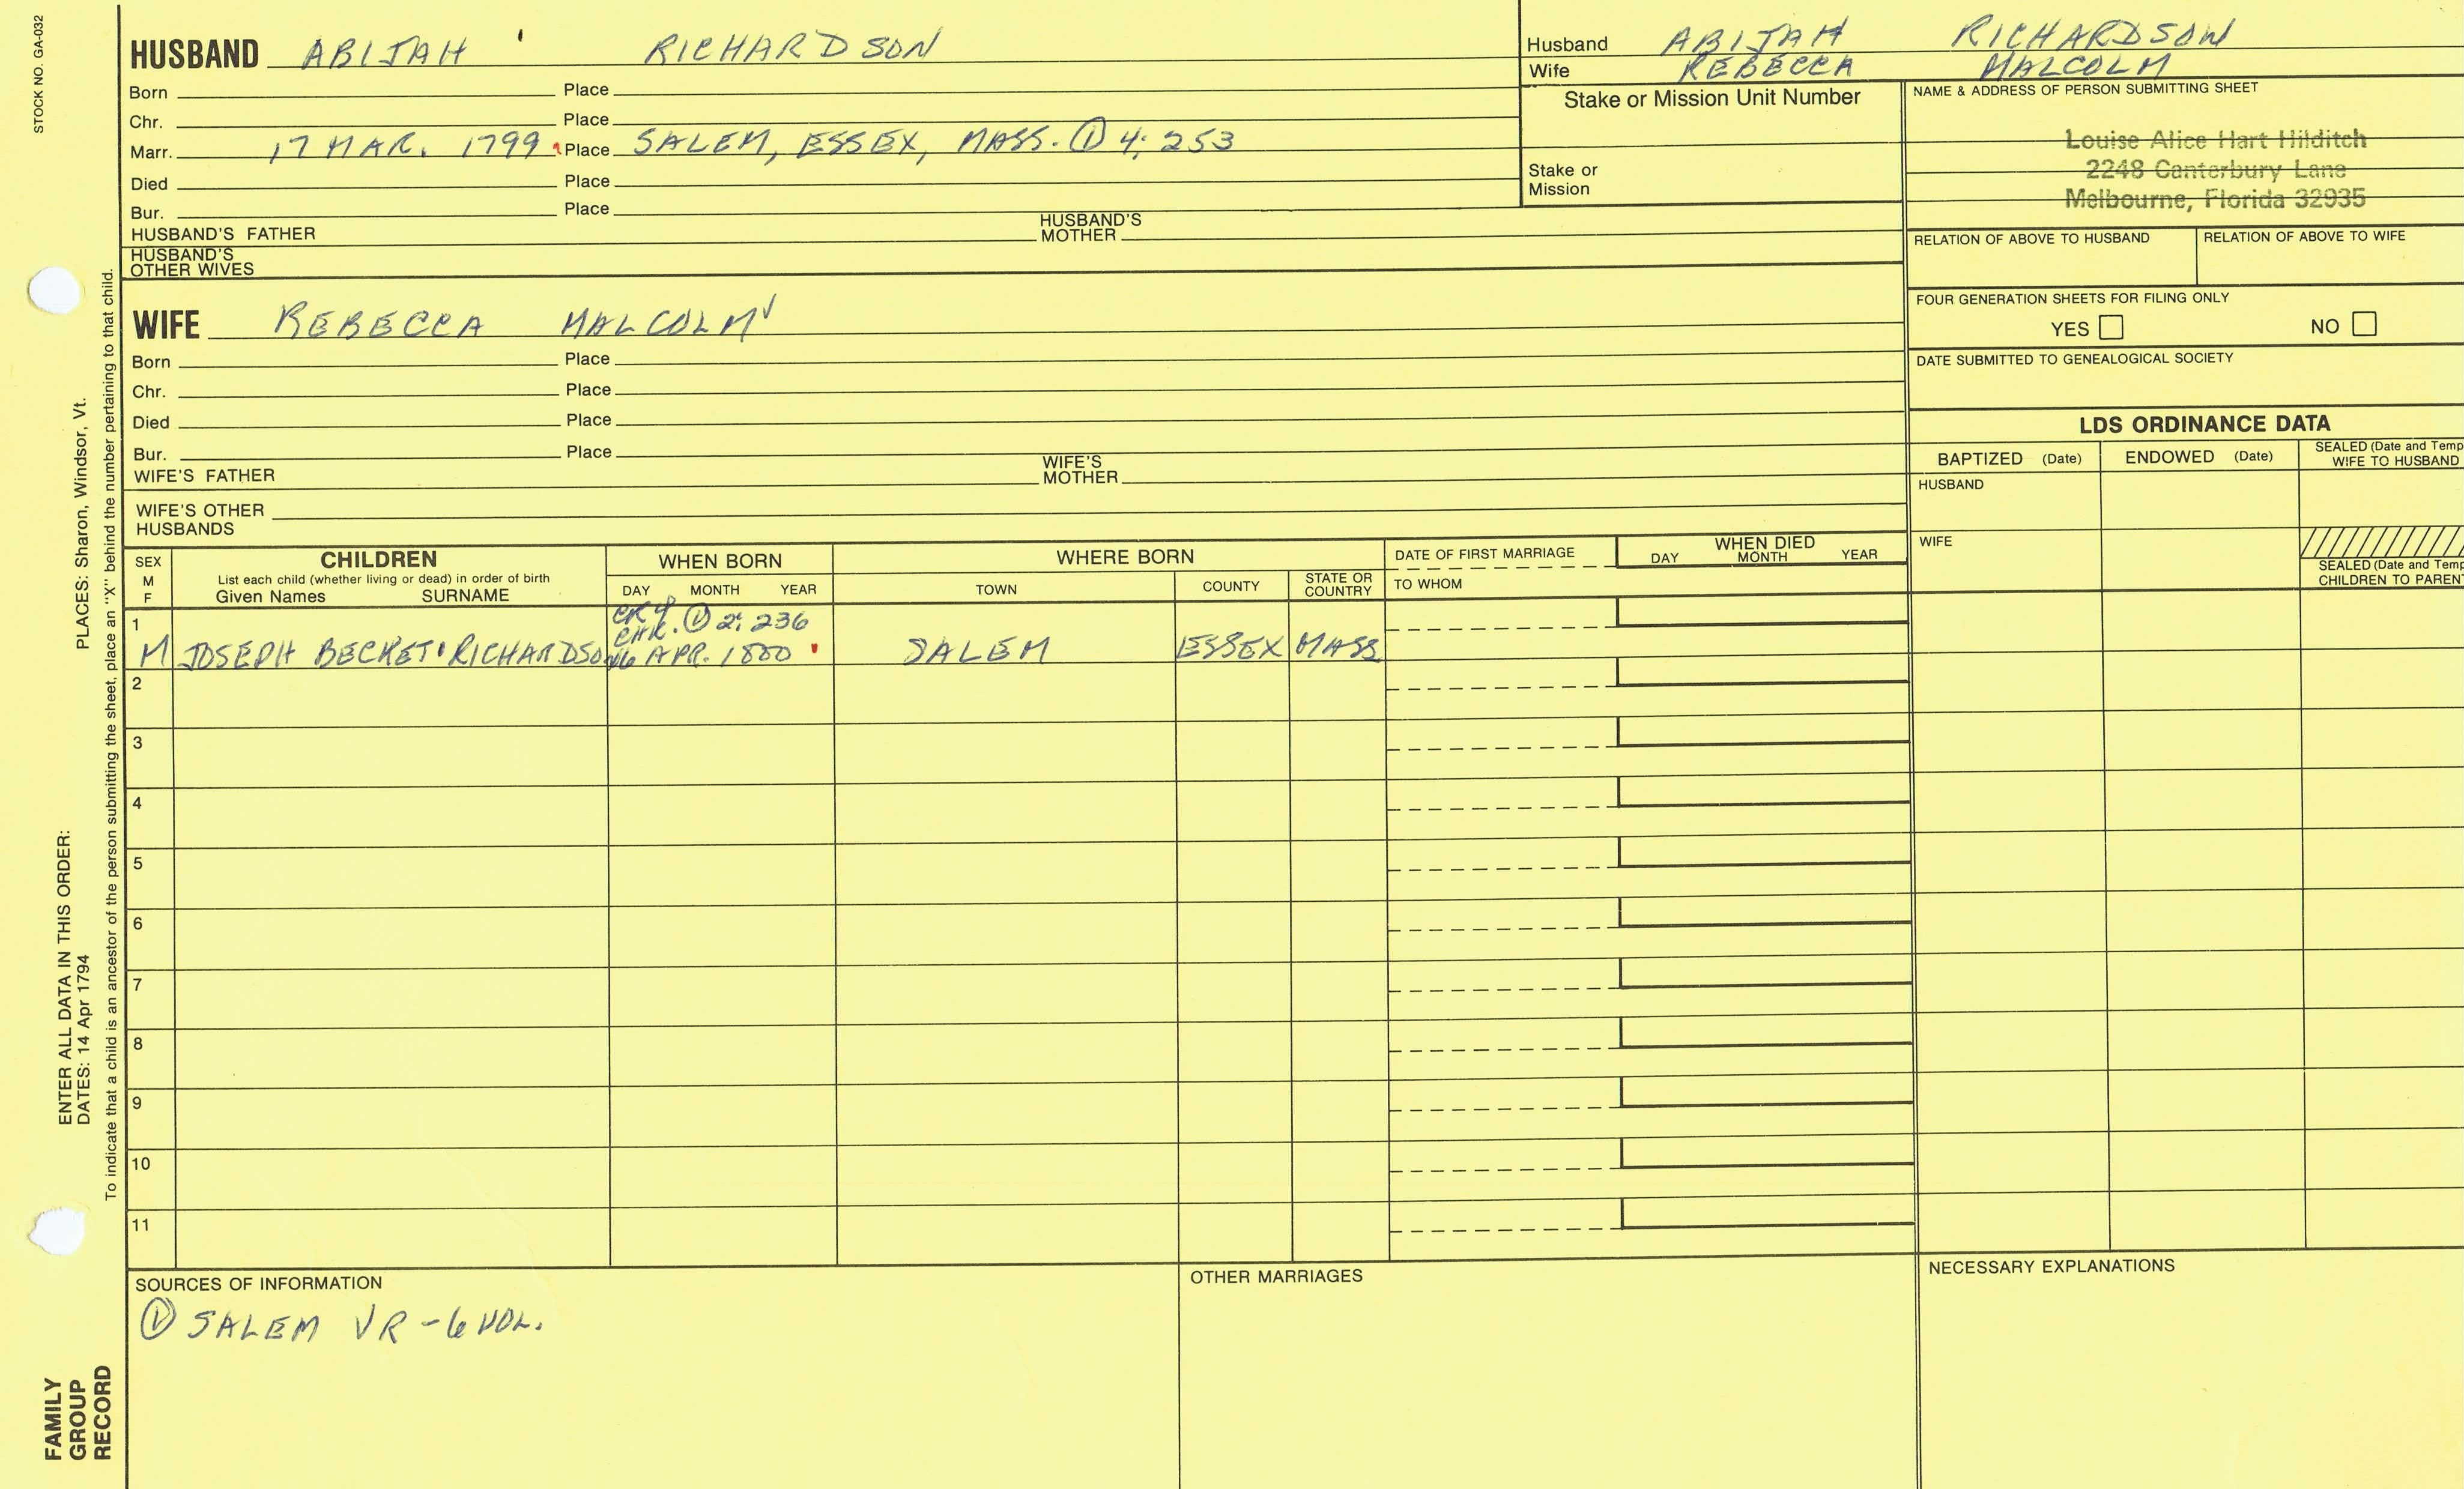 STOCK NO. GA-032
HUSBAND ABIJAH RICHARDSON
Born Place
Chr. Place
Marr. 17 MAR. 1799 Place SALEM, ESSEX, MASS. ① 4: 253
Died Place
Bur. Place
HUSBAND'S FATHER HUSBAND'S MOTHER
HUSBAND'S OTHER WIVES
Husband ABIJAH RICHARDSON
Wife REBECCA MALCOLM
Stake or Mission Unit Number
Stake or
Mission
NAME & ADDRESS OF PERSON SUBMITTING SHEET
Louise Alice Hart Hilditch
2248 Canterbury Lane
Melbourne, Florida 32935
RELATION OF ABOVE TO HUSBAND RELATION OF ABOVE TO WIFE
FOUR GENERATION SHEETS FOR FILING ONLY
YES NO
DATE SUBMITTED TO GENEALOGICAL SOCIETY
WIFE REBECCA MALCOLM
Born Place
Chr. Place
Died Place
Bur. Place
WIFE'S FATHER WIFE'S MOTHER
WIFE'S OTHER
HUSBANDS
LDS ORDINANCE DATA
BAPTIZED (Date) ENDOWED (Date) SEALED (Date and Temp
WIFE TO HUSBAND
HUSBAND
WIFE
SEALED (Date and Temp
CHILDREN TO PAREN
SEX
M
F
CHILDREN
List each child (whether living or dead) in order of birth
Given Names SURNAME
WHEN BORN
DAY MONTH YEAR
WHERE BORN
TOWN COUNTY STATE OR COUNTRY
DATE OF FIRST MARRIAGE
TO WHOM
WHEN DIED
DAY MONTH YEAR
1
CHR. ① 2: 236
M JOSEPH BECKET RICHARDSON APR. 1800 SALEM ESSEX MASS
2
3
4
5
6
7
8
9
10
11
SOURCES OF INFORMATION
① SALEM VR - 6 VOL.
OTHER MARRIAGES
NECESSARY EXPLANATIONS
PLACES: Sharon, Windsor, Vt.
ENTER ALL DATA IN THIS ORDER:
DATES: 14 Apr 1794
To indicate that a child is an ancestor of the person submitting the sheet, place an "X" behind the number pertaining to that child.
FAMILY
GROUP
RECORD